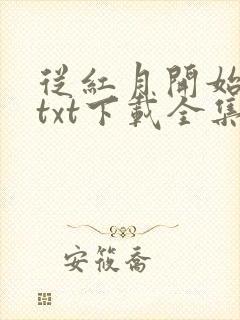 從紅月開始
txt下載全集
安筱喬